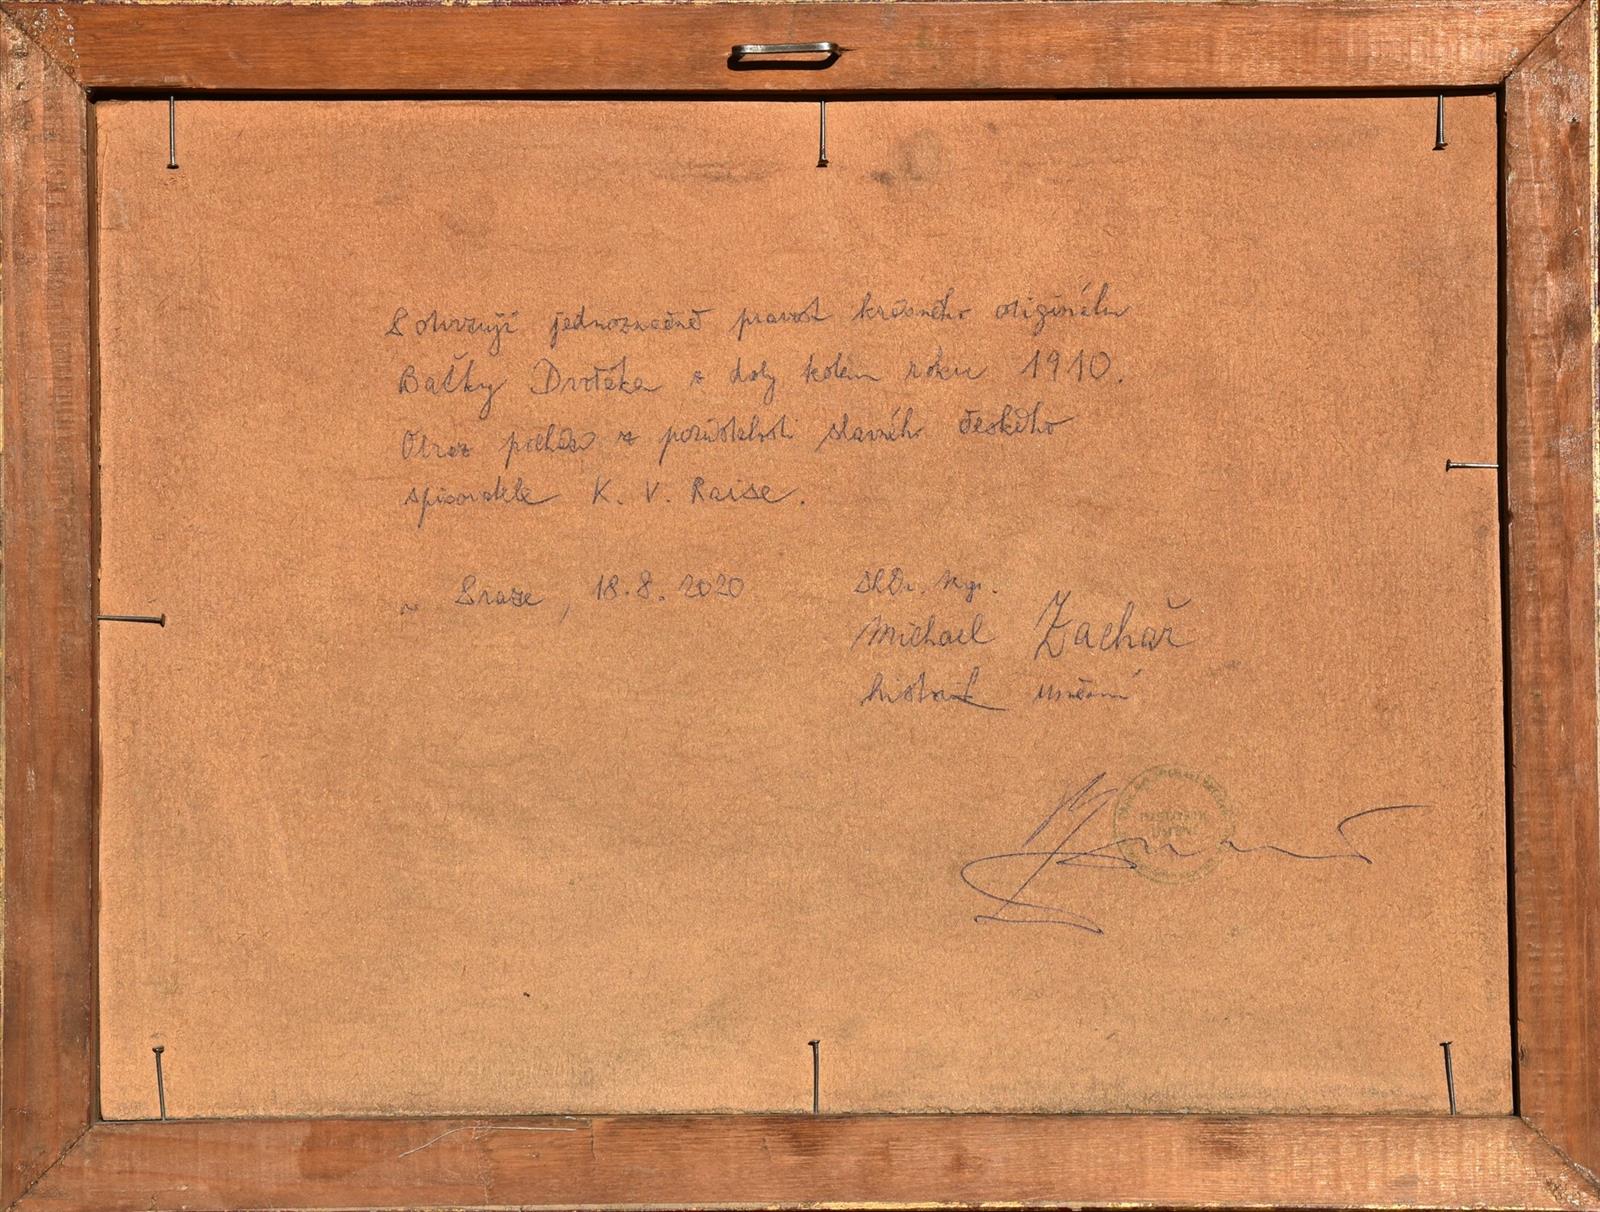 Potvrzuji jednoznačně pravost krásného originálu
Bačky Dvořáka z doby kolem roku 1910.
Obraz pochází z pozůstalosti slavného českého
spisovatele K. V. Raise.
v Praze, 18.8.2020
PhDr. Mgr.
Michael Zachař
historik umění
HISTORIK
UMĚNÍ